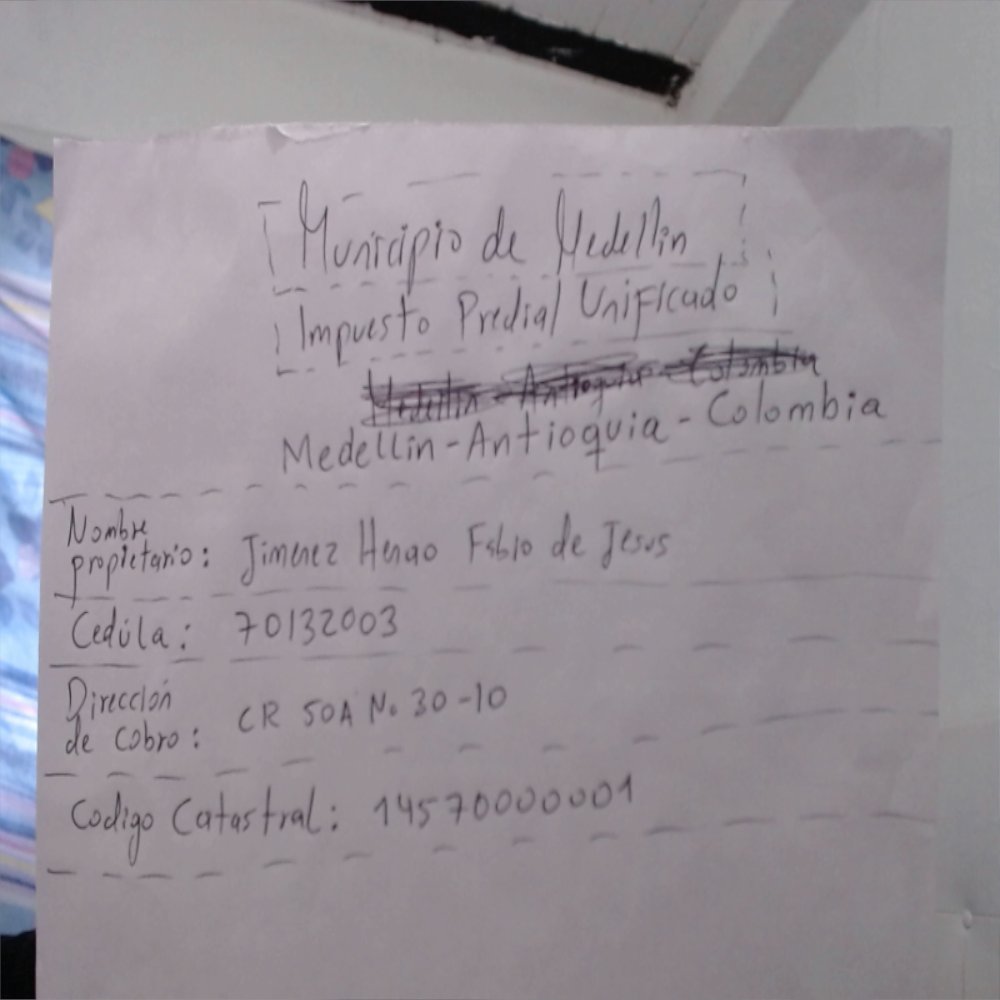 Municipio de Medellin
Impuesto Predial Unificado
Medellin - Antioquia - Colombia
Medellin-Antioquia-Colombia
Nombre
propietario: Jimenez Henao Fabio de Jesus
Cedúla: 70132003
Dirección
de cobro: CR 50A No 30-10
Codigo Catastral: 14570000001